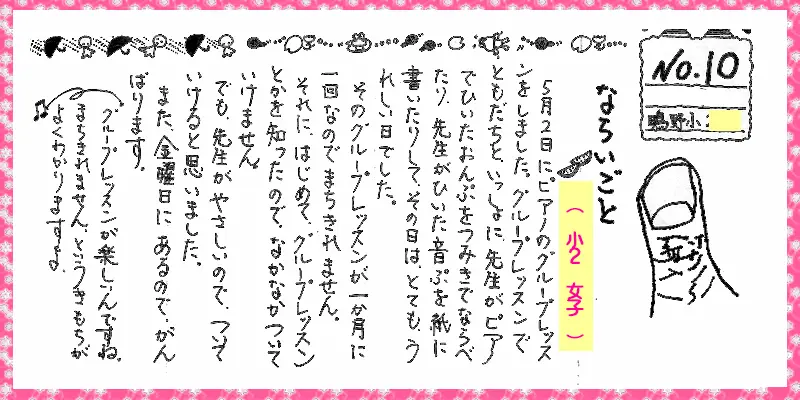 No.10
鴫野小
ならいごと
(小2 女子)
5月2日にピアノのグループレッス
ンをしました。グループレッスンで
ともだちと、いっしょに、先生がピア
でひいたおんぷをつみきでならべ
たり、先生がひいた音ぷを紙に
書いたりして、その日は、とても、う
れしい日でした。
そのグループレッスンが一か月に
一回なのでまちきれません。
それに、はじめて、グループレッスン
とかを知ったので、なかなかついて
いけません。
でも、先生がやさしいので、ついて
いけると思いました。
また、金曜日にあるので、がん
ばります。
グループレッスンが楽しいんですね。
まちきれません、というきもちが
よくわかりますよ。